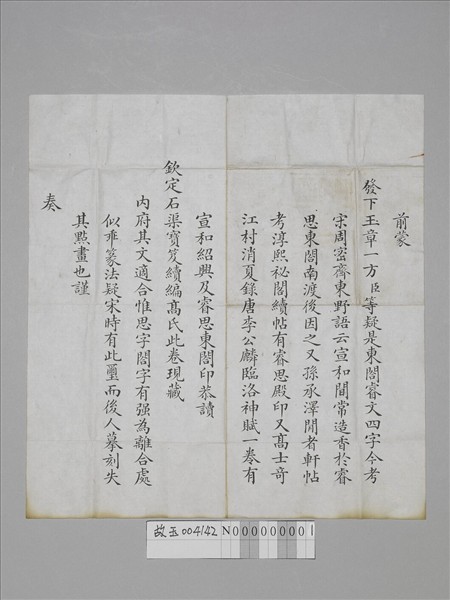 前蒙
發下玉章一方臣等疑是東閤睿文四字今考
宋周密齊東野語云宣和間常造香於睿
思東閤南渡後因之又孫承澤閒者軒帖
考淳熙秘閣續帖有睿思殿印又高士奇
江村消夏錄唐李公麟臨洛神賦一卷有
宣和紹興及睿思東閤印恭讀
欽定石渠寶笈續編高氏此卷現藏
內府其文適合惟思字閤字有强為離合處
似乖篆法疑宋時有此璽而後人摹刻失
其點畫也謹
奏
故玉004142 N000000001